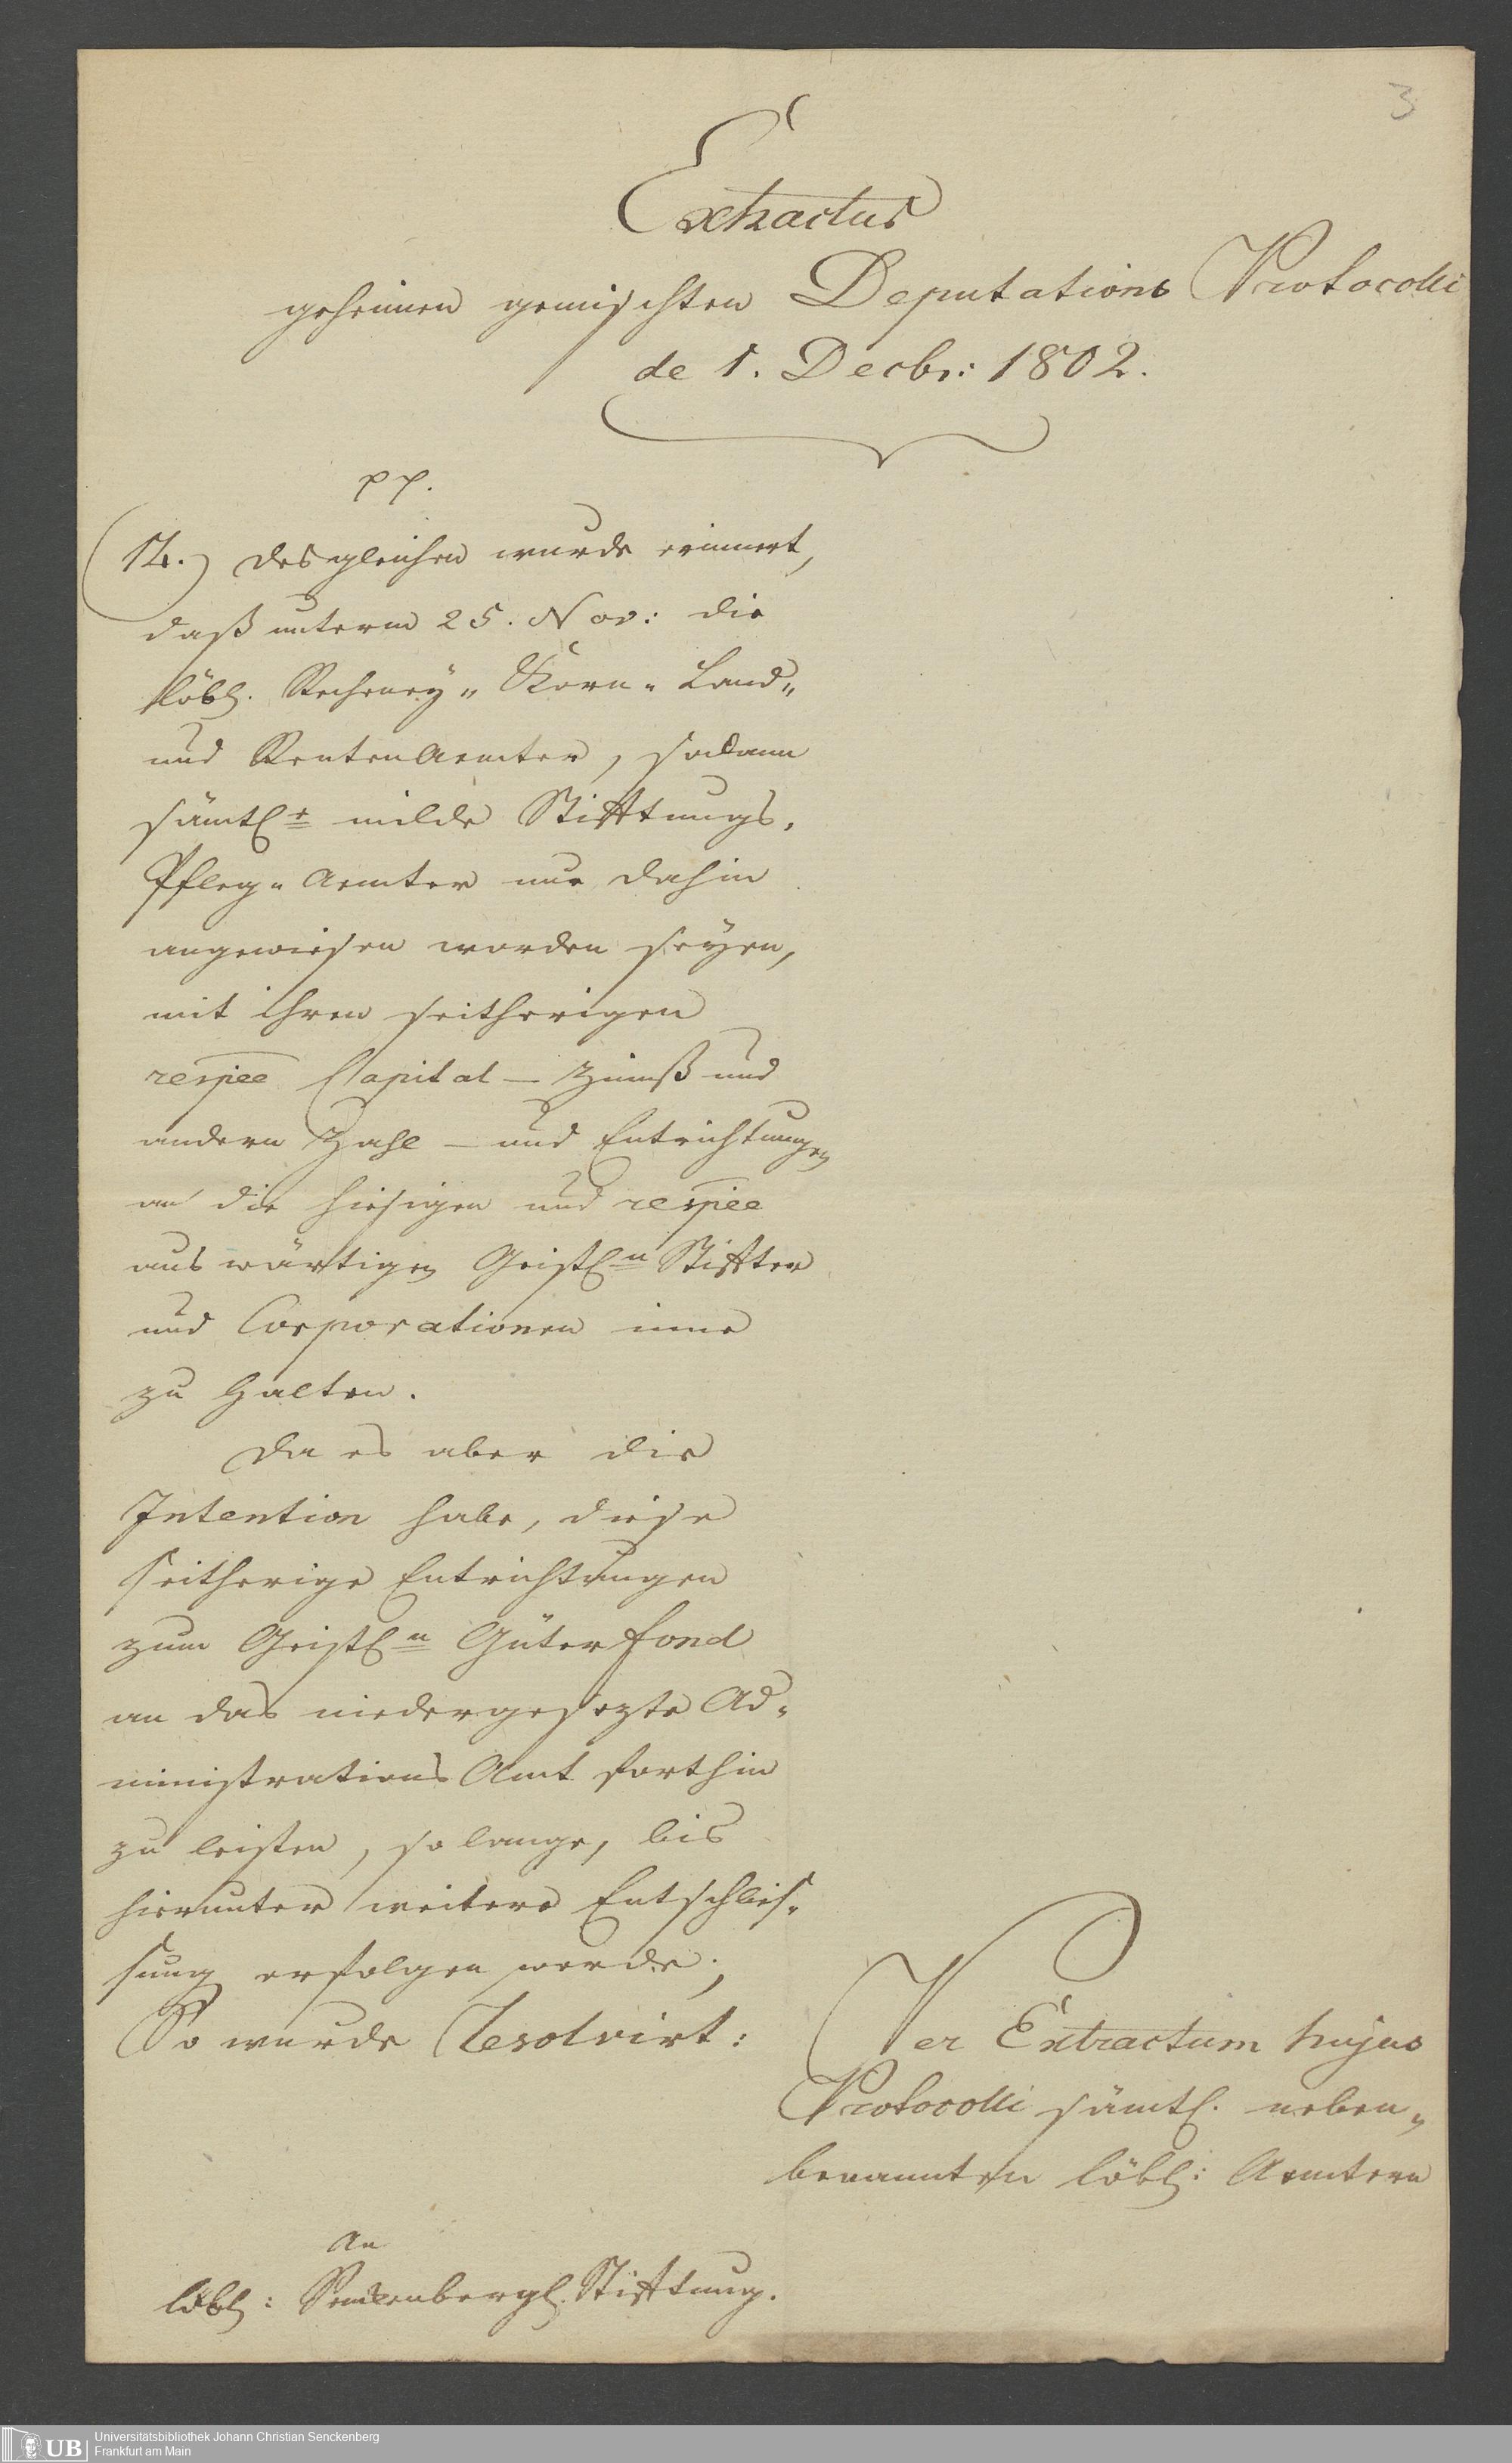 3
Extractus
geheimen gemischten Deputations Protocolli
de 1. Decbr: 1802.
pp.
14.) Desgleichen wurde erinnert,
daß unterm 25. Nov: die
löbl. Recheney „ Korn „ Land „
und Renten Aemter, sodann
sämtl.e milde Stifftungs „
Pfleg „ Aemter nur dahin
angewiesen worden seyen,
mit ihren seitherigen
respee Capital – Zinnß und
andern Zahl – und Entrichtungen
an die hiesigen und respee
auswärtigen Geistl.n Stiffter
und Corporationen inne
zu halten.
Da es aber die
Intention habe, diese
seitherige Entrichtungen
zum Geistl.n Güter fond
an das niedergesezte Ad „
ministrations Amt forthin
zu leisten, so lange, bis
hierunter weitere Entschlies „
sung erfolgen werde;
So wurde Resolvirt:
Per Extractum hujus
Protocolli sämtl. neben „
benannten löbl: Aemtern
An
löbl: Senkenbergl. Stifftung.
UB
Universitätsbibliothek Johann Christian Senckenberg
Frankfurt am Main